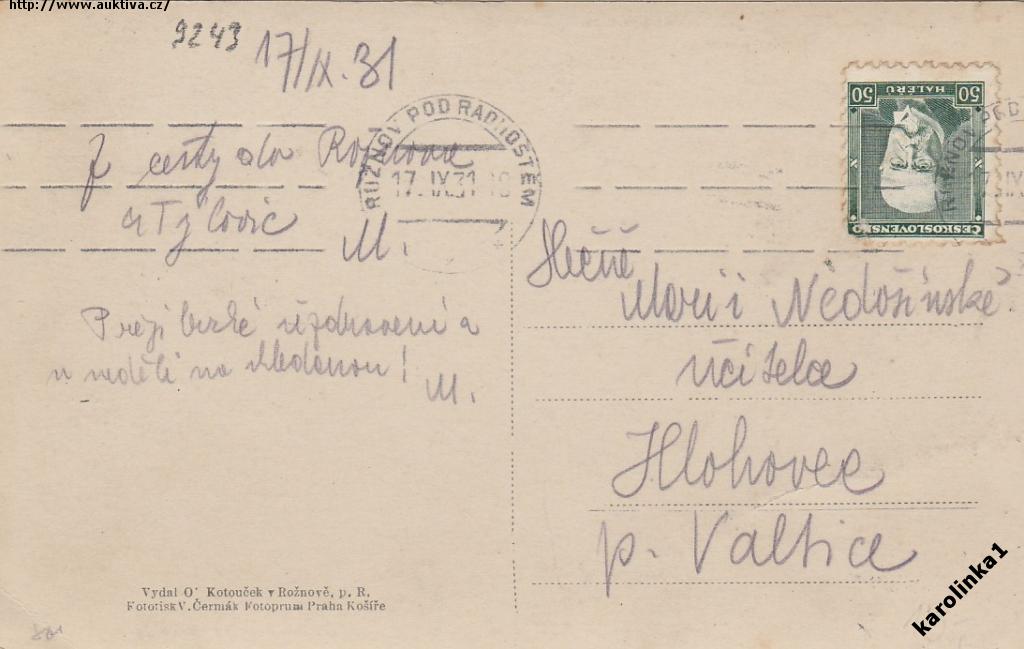 http://www.auktiva.cz/
9243
17/IX.31
ROŽNOV POD RADHOŠTĚM
17.IX.31
Z cesty do Rožnova
M.
Přeji brzké uzdravení a
v neděli na shledanou!
M.
Vydal O' Kotouček v Rožnově, p. R.
Fototisk V. Čermák Fotoprum Praha Košíře
50 HALÉŘŮ 50
ČESKOSLOVENSKO
Slečně
Marii Nedošínské
učitelce
Hlohovec
p. Valtice
karolinka1